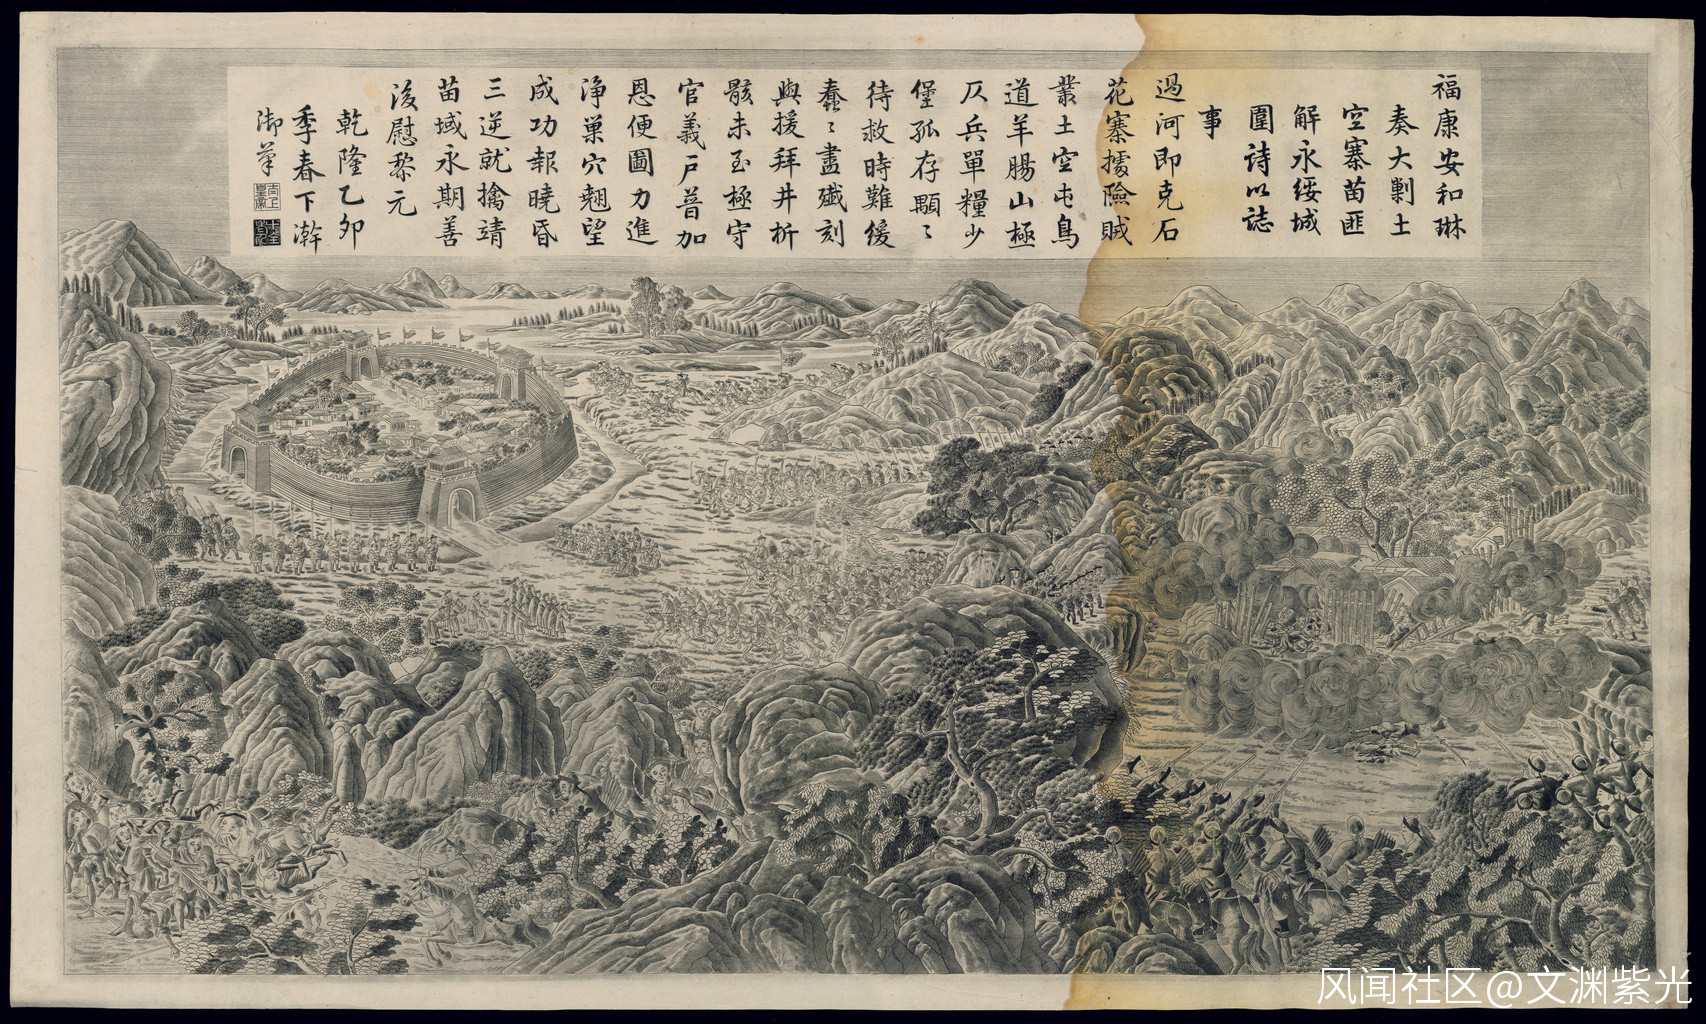 福康安和琳
奏大剿土
空寨苗匪
解永綏城
圍詩以誌
事
過河即克石
花寨據險賊
叢土空屯鳥
道羊腸山極
仄兵單糧少
堡孤存顒〻
待救時難緩
蠢〻盡殲刻
與援拜井析
骸未至極守
官義戶普加
恩便圖力進
淨巢穴翹望
成功報曉昏
三逆就擒靖
苗域永期善
後慰黎元
乾隆乙卯
季春下澣
御筆
风闻社区@文渊紫光